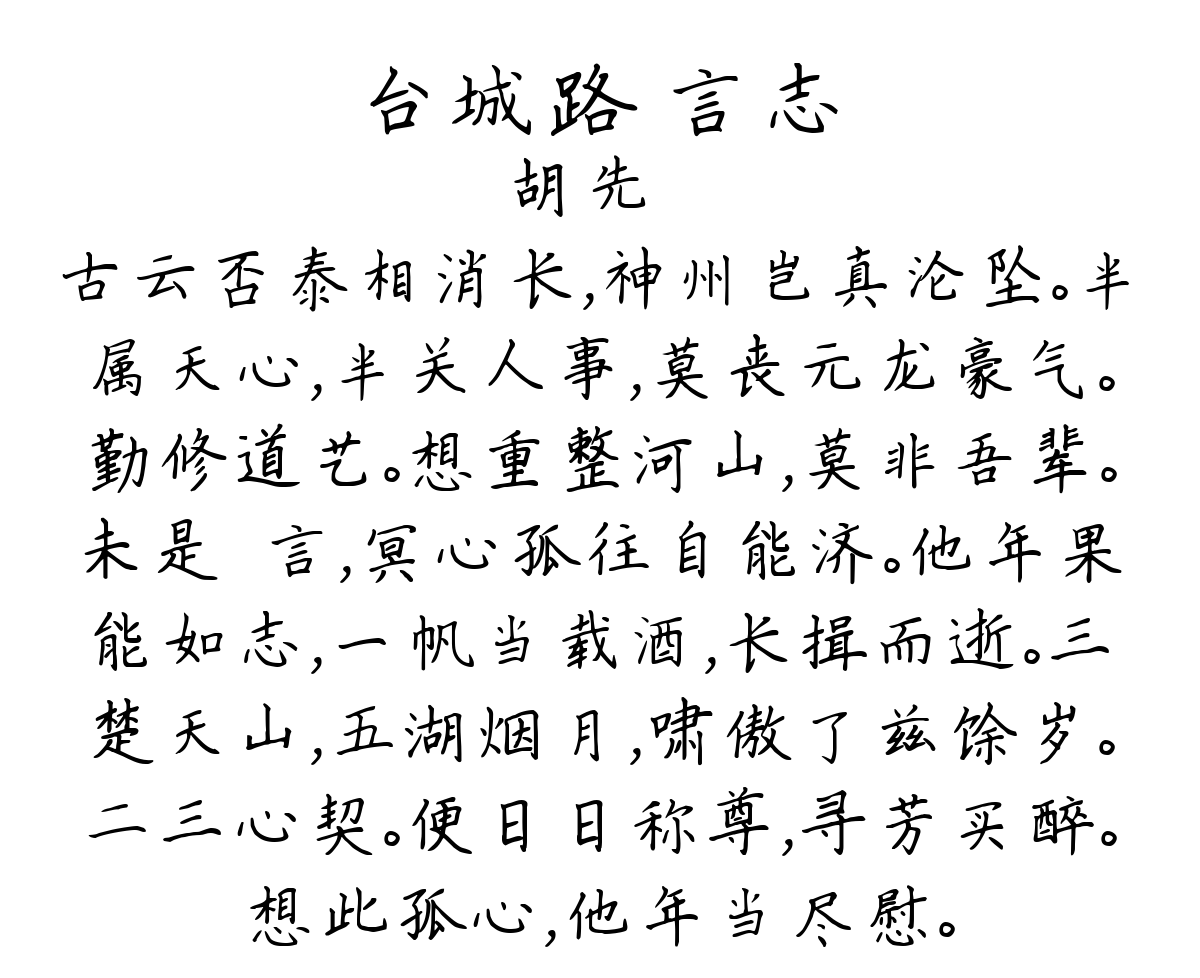 台城路 言志
胡先
古云否泰相消长,神州岂真沦坠。半
属天心,半关人事,莫丧元龙豪气。
勤修道艺。想重整河山,莫非吾辈。
未是 言,冥心孤往自能济。他年果
能如志,一帆当载酒,长揖而逝。三
楚天山,五湖烟月,啸傲了兹馀岁。
二三心契。便日日称尊,寻芳买醉。
想此孤心,他年当尽慰。